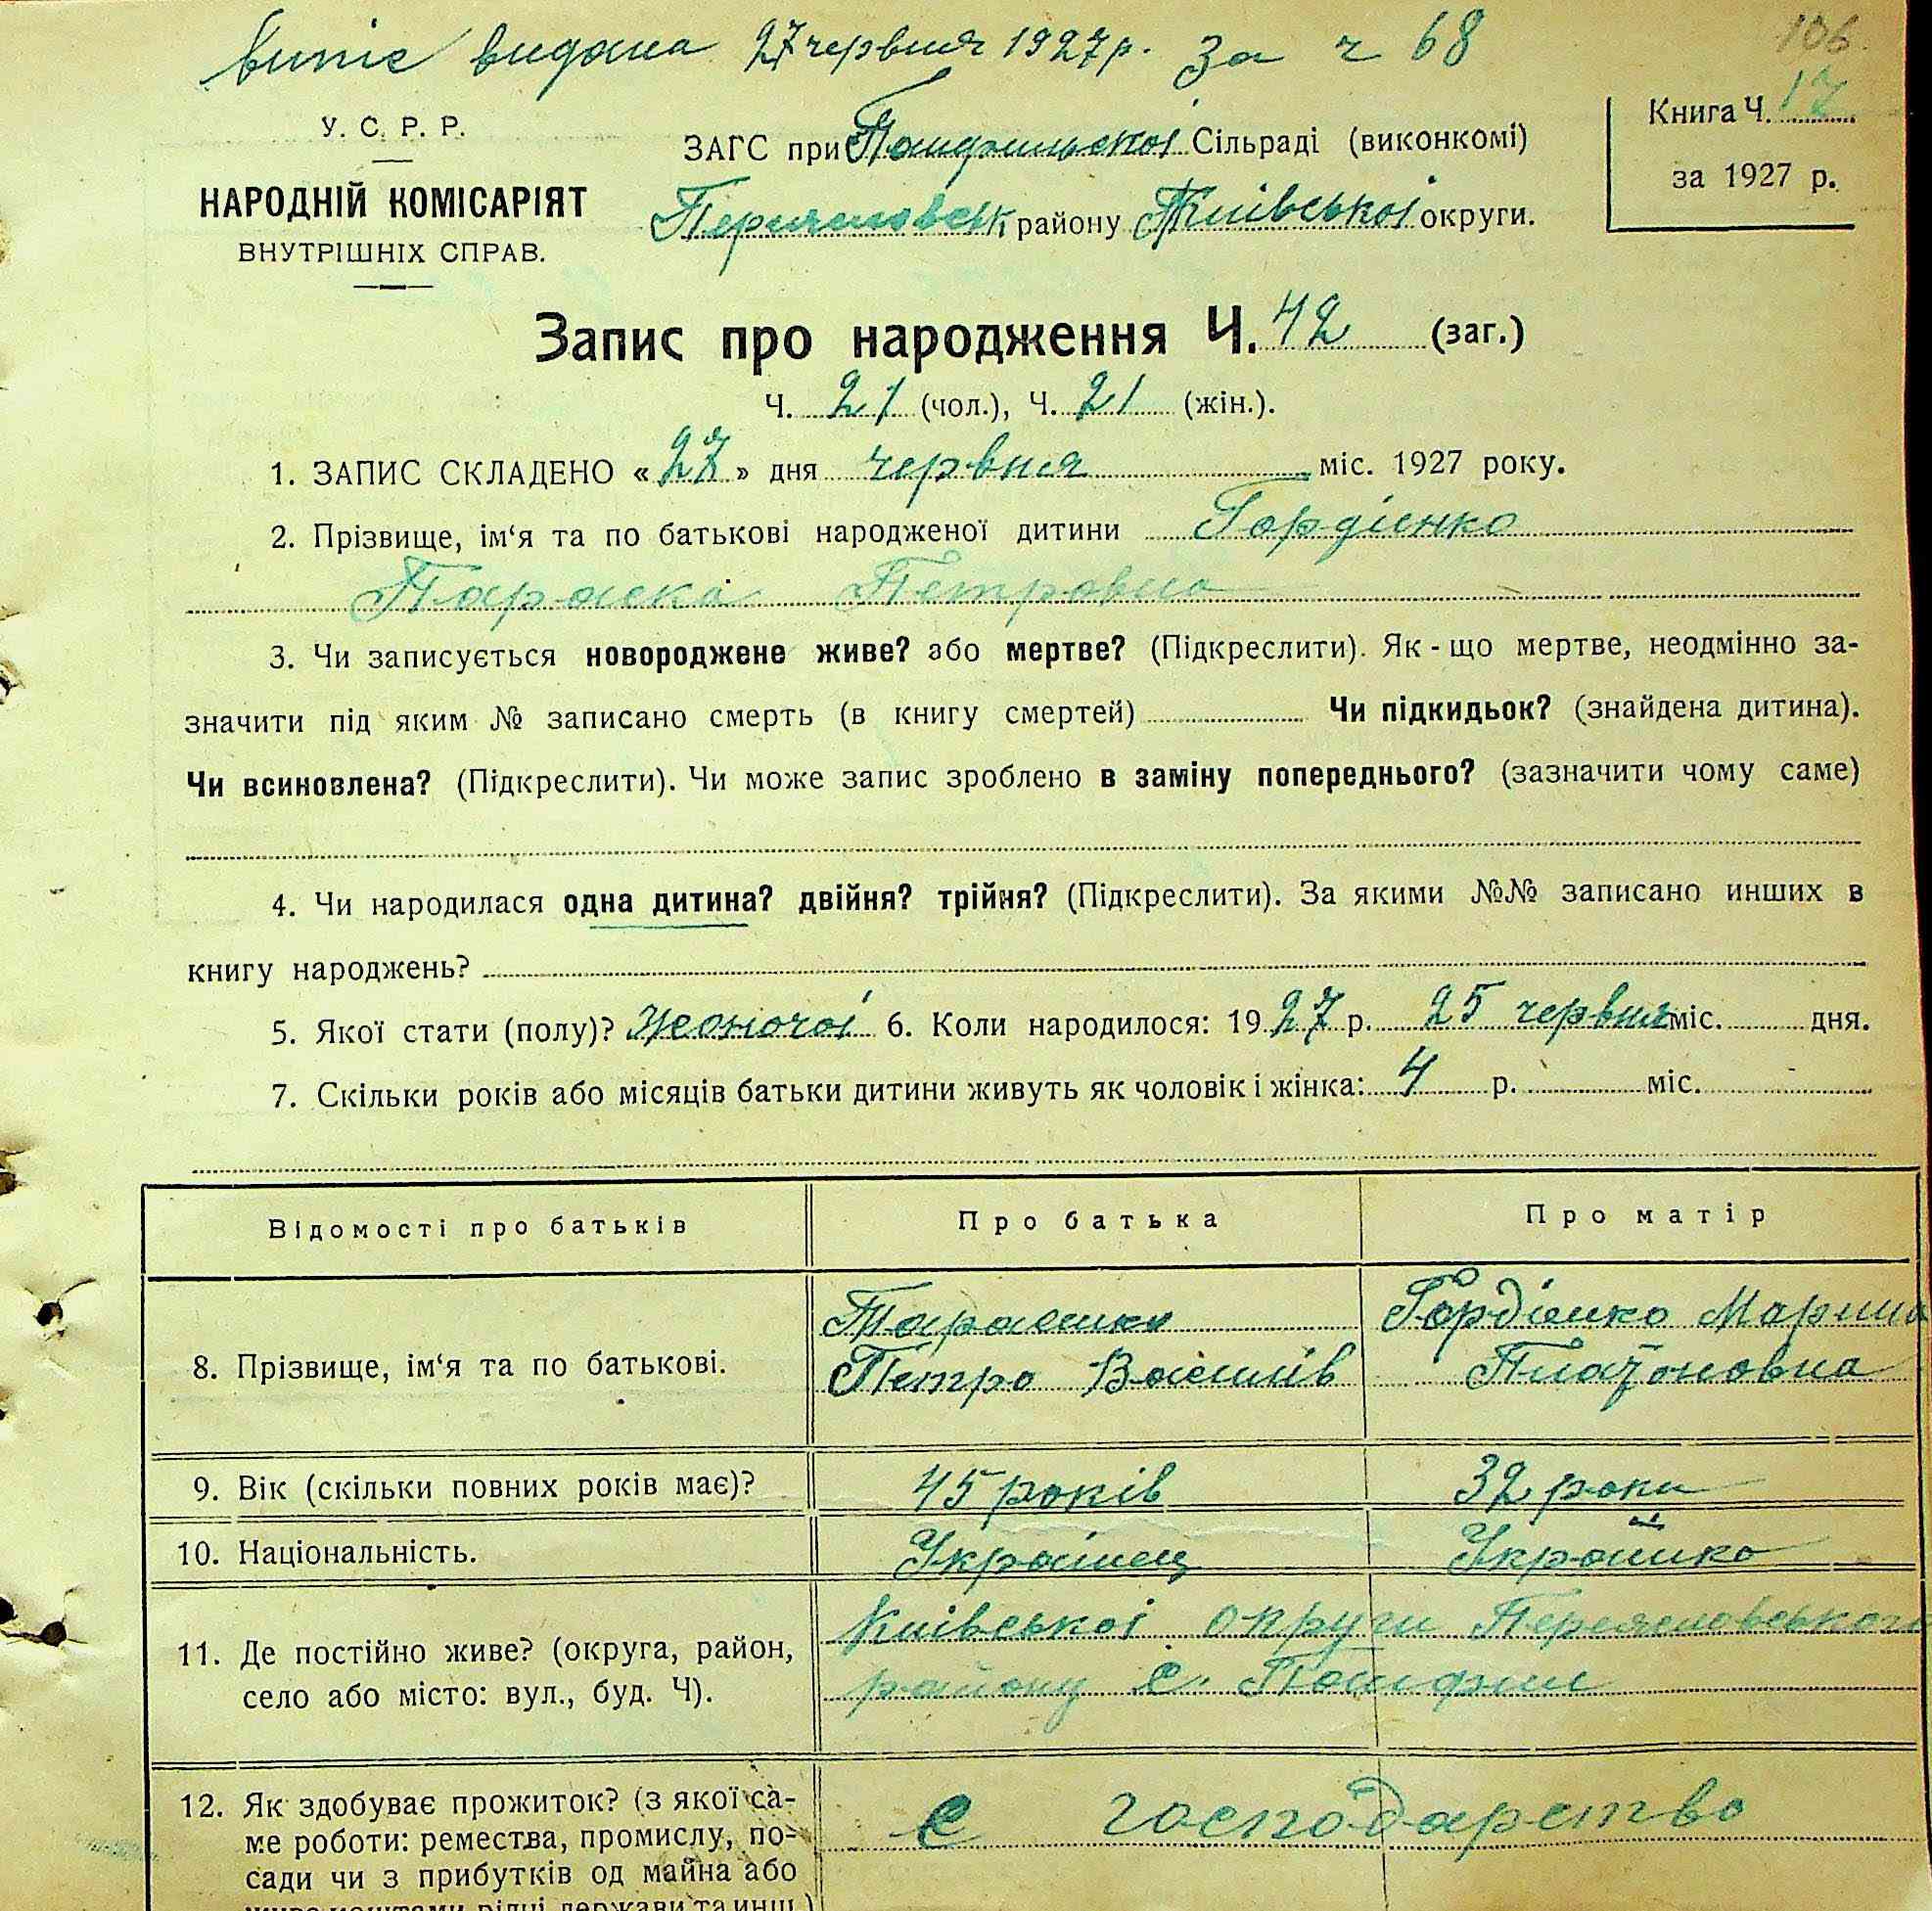 Витяг видана 27 червня 1927 р. За ч 68
106
У. С. Р. Р.
НАРОДНІЙ КОМІСАРІЯТ
ВНУТРІШНІХ СПРАВ.
ЗАГС при Сільраді (виконкомі)
району Київської округи.
Книга Ч. 17
за 1927 р.
Запис про народження Ч. 42 (заг.)
Ч. 21 (чол.), Ч. 21 (жін.).
1. ЗАПИС СКЛАДЕНО «27» дня червня міс. 1927 року.
2. Прізвище, ім‘я та по батькові народженої дитини Гордієнко
Параска Петровна
3. Чи записується новороджене живе? або мертве? (Підкреслити). Як-що мертве, неодмінно за-
значити під яким № записано смерть (в книгу смертей) Чи підкидьок? (знайдена дитина).
Чи всиновлена? (Підкреслити). Чи може запис зроблено в заміну попереднього? (зазначити чому саме)
4. Чи народилася одна дитина? двійня? трійня? (Підкреслити). За якими №№ записано инших в
книгу народжень?
5. Якої стати (полу)? Жоночої 6. Коли народилося: 1927 р. 25 червня міс. дня.
7. Скільки років або місяців батьки дитини живуть як чоловік і жінка: 4 р. міс.
Відомості про батьків Про батька Про матір
8. Прізвище, ім‘я та по батькові.
Петро
Гордієнко Марина
Платоновна
9. Вік (скільки повних років має)? 45 років 32 роки
10. Національність. Українец Українка
11. Де постійно живе? (округа, район,
село або місто: вул., буд. Ч).
Київської округи Переясловського
району с.
12. Як здобуває прожиток? (з якої са-
ме роботи: ремества, промислу, по-
сади чи з прибутків од майна або
живе коштами рідні держави та инш.)
с господарство